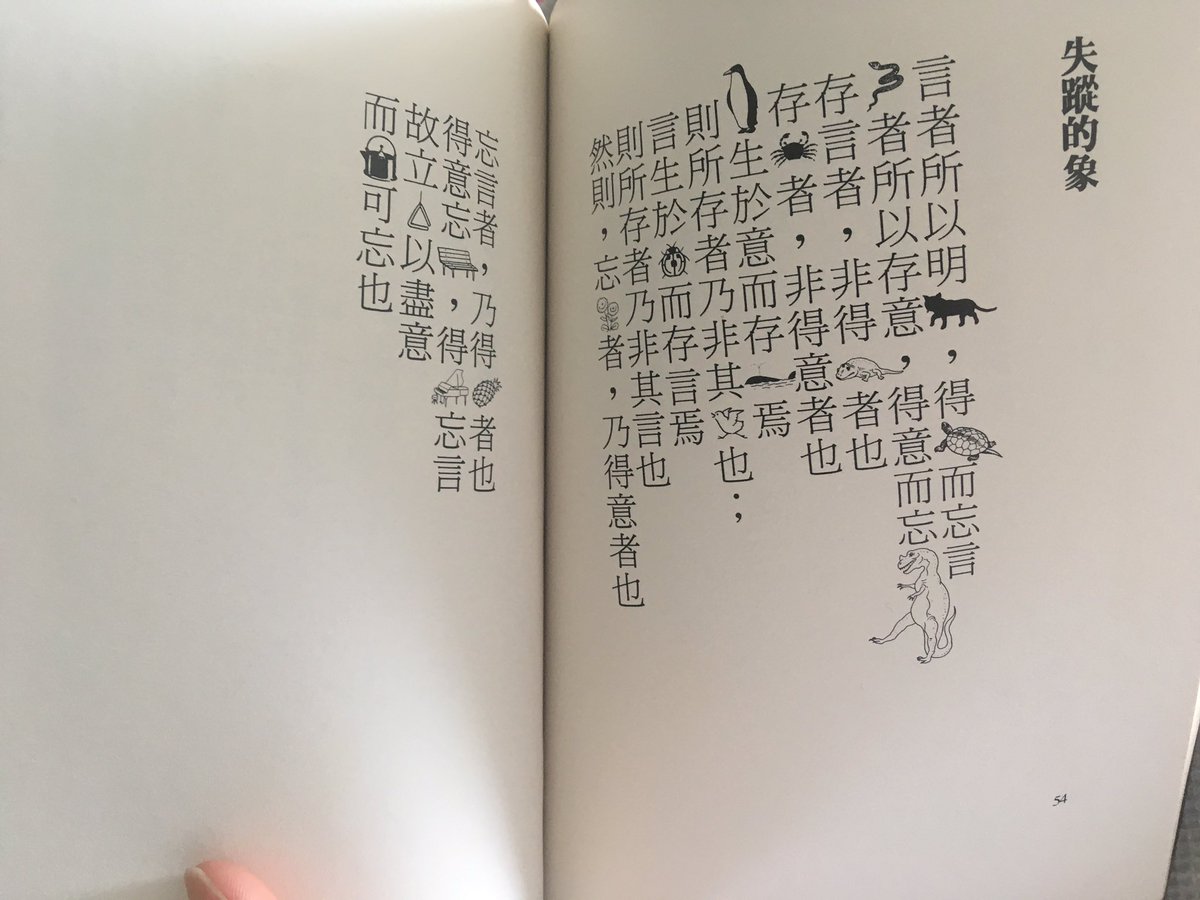 失蹤的象
言者所以明 ,得 而忘言
者所以存意,得意而忘
存言者,非得 者也
存 者,非得意者也
生於意而存 焉
則所存者乃非其 也;
言生於 而存言焉
則所存者乃非其言也
然則,忘 者,乃得意者也
54
忘言者,乃得 者也
得意忘 ,得 忘言
故立 以盡意
而 可忘也